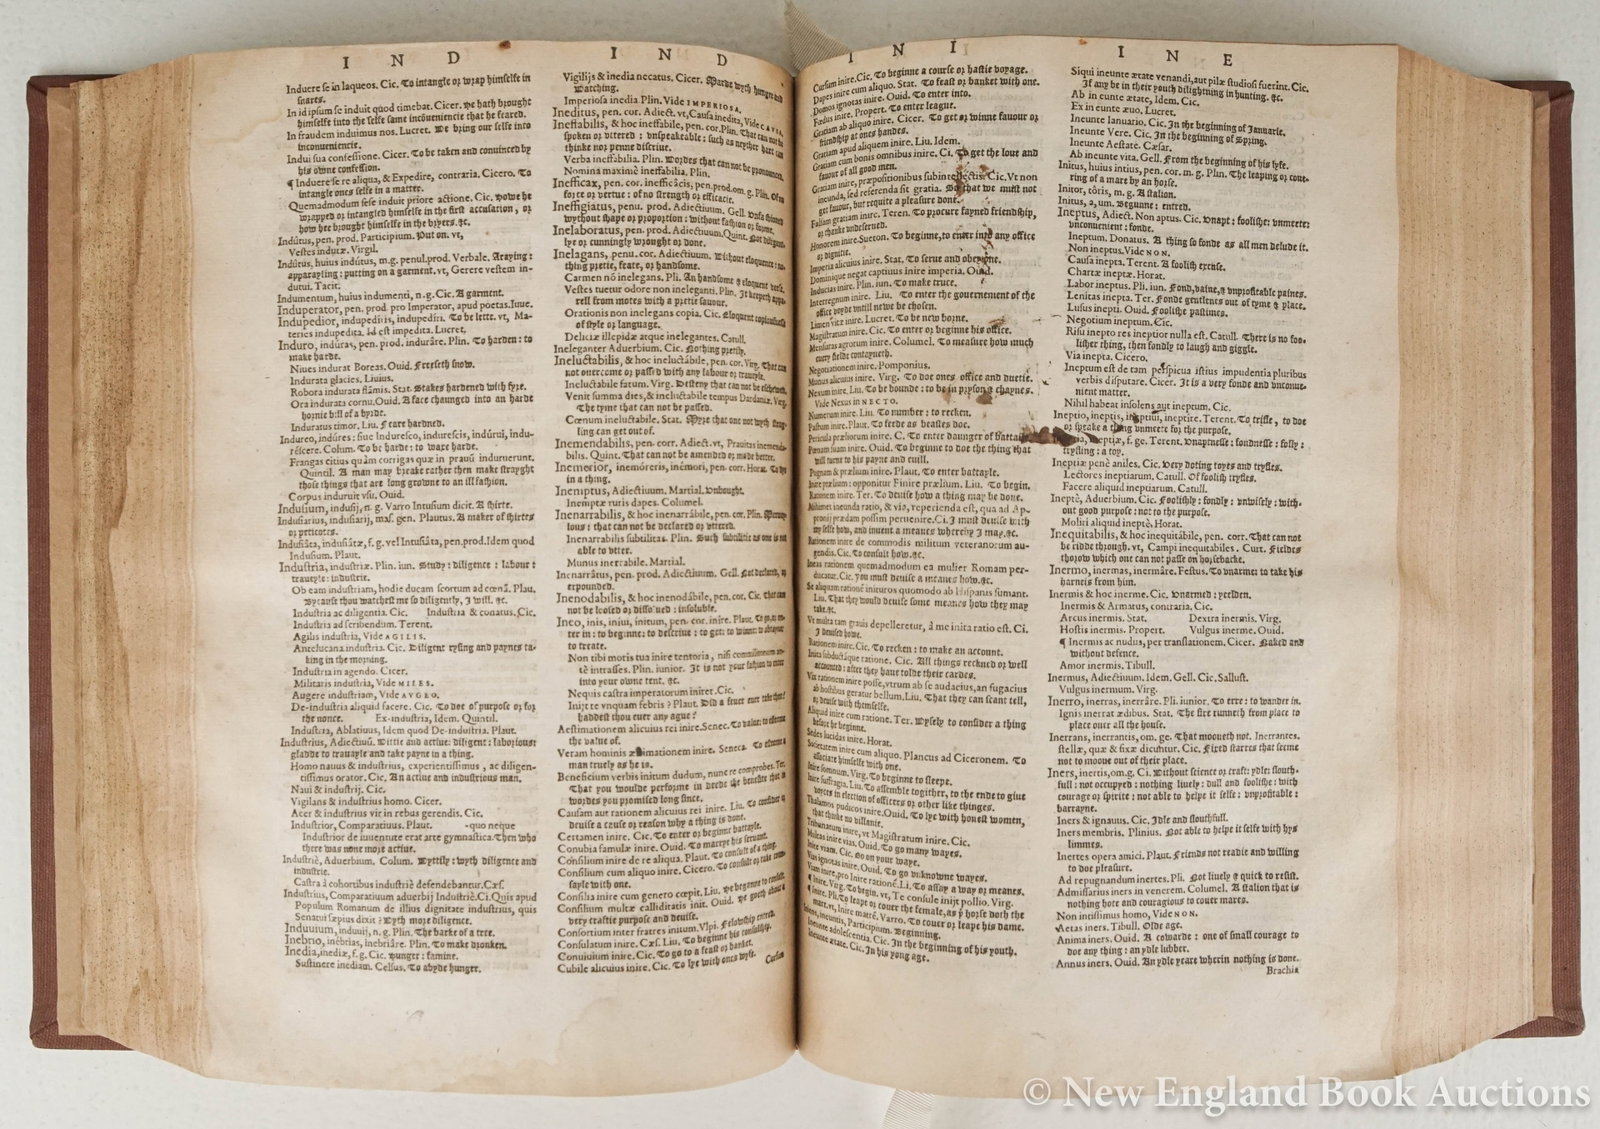 I N D
Induere se in laqueos. Cic. To intangle or wrap himselfe in
snares.
In id ipsum se induit quod timebat. Cicer. He hath brought
himselfe into the selfe same inconuenience that he feared.
In fraudem induimus nos. Lucret. We bring our selfe into
inconueniencie.
Indui sua confessione. Cicer. To be taken and conuinced by
his owne confession.
¶ Induere se re aliqua, & Expedire, contraria. Cicero. To
intangle ones selfe in a matter.
Quemadmodum sese induit priore actione. Cic. Howe he
wrapped or intangled himselfe in the first accusation, or
how hee brought himselfe in the bryers. &c.
Indûtus, pen. prod. Participium. Put on. vt,
Vestes indutæ. Virgil.
Indûtus, huius indûtus, m.g. penul.prod. Verbale. Araying:
apparayling: putting on a garment. vt, Gerere vestem in-
dutui. Tacit.
Indumentum, huius indumenti, n.g. Cic. A garment.
Induperator, pen. prod. pro Imperator, apud poetas. Iuue.
Indupedior, indupedîris, indupedîri. To be lette. vt, Ma-
teries indupedita. Id est impedita. Lucret.
Induro, indûras, pen. prod. indurâre. Plin. To harden: to
make harde.
Niues indurat Boreas. Ouid. Freeseth snow.
Indurata glacies. Liuius.
Robora indurata flāmis. Stat. Stakes hardened with fyre.
Ora indurata cornu. Ouid. A face chaunged into an harde
hornie bill of a byrde.
Induratus timor. Liu. Feare hardned.
Indureo, indûres: siue Induresco, indurescis, indûrui, indu-
réscere. Colum. To be harde: to waxe harde.
Frangas citius quàm corrigas quæ in prauū induruerunt.
Quintil. A man may breake rather then make strayght
those things that are long growne to an ill fashion.
Corpus induruit vsu. Ouid.
Indusium, indusij, n.g. Varro Intusium dicit. A shirte.
Indusiarius, indusiarij, mas. gen. Plautus. A maker of shirtes
or peticotes.
Indusiâta, indusiâtæ, f.g. vel Intusiâta, pen.prod. Idem quod
Indusium. Plaut.
Industria, industriæ. Plin. iun. Study: diligence: labour:
trauayle: industrie.
Ob eam industriam, hodie ducam scortum ad cœnā. Plau.
Bycause thou watchest me so diligently, I will. &c.
Industria ac diligentia. Cic. Industria & conatus. Cic.
Industria ad scribendum. Terent.
Agilis industria, Vide AGILIS.
Antelucana industria. Cic. Diligent rysing and paynes ta-
king in the morning.
Industria in agendo. Cicer.
Militaris industria, Vide MILES.
Augere industriam, Vide AVGEO.
De-industria aliquid facere. Cic. To doe of purpose or for
the nonce. Ex-industria, Idem. Quintil.
Industria, Ablatiuus, Idem quod De-industria. Plaut.
Industrius, Adiectiuū. Wittie and actiue: diligent: laborious:
gladde to trauayle and take payne in a thing.
Homo nauus & industrius, experientissimus, ac diligen-
tissimus orator. Cic. An actiue and industrious man.
Naui & industrij. Cic.
Vigilans & industrius homo. Cicer.
Acer & industrius vir in rebus gerendis. Cic.
Industrior, Comparatiuus. Plaut. -quo neque
Industrior de iuuentute erat arte gymnastica. Then who
there was none more actiue.
Industriè, Aduerbium. Colum. Wyttily: wyth diligence and
industrie.
Castra à cohortibus industriè defendebantur. Cæs.
Industrius, Comparatiuum aduerbij Industriè. Ci. Quis apud
Populum Romanum de illius dignitate industrius, quis
Senatui sæpius dixit? Wyth more diligence.
Induuium, induuij, n.g. Plin. The barke of a tree.
Inebrio, inébrias, inebriâre. Plin. To make dronken.
Inedia, inediæ, f.g. Cic. Hunger: famine.
Sustinere inediam. Celsus. To abyde hunger.
I N D
Vigilijs & inedia necatus. Cicer. Marde wyth hunger and
watching.
Imperiosa inedia Plin. Vide IMPERIOSA.
Ineditus, pen. cor. Adiect. vt, Causa inedita, Vide CAVSA.
Ineffabilis, & hoc ineffabile, pen. cor. Plin. That can not be
spoken or vttered: vnspeakeable: such as neyther hart can
thinke nor penne discriue.
Verba ineffabilia. Plin. Wordes that can not be pronounced.
Nomina maximè ineffabilia. Plin.
Inefficax, pen. cor. inefficâcis, pen.prod.om.g. Plin. Of no
force or vertue: of no strength or efficacie.
Ineffigiatus, penu. prod. Adiectium. Gell. Vnfashioned
wythout shape or proportion: without fashion or forme.
Inelaboratus, pen. prod. Adiectium. Quint. Not diligent-
lye or cunningly wrought or done.
Inelegans, penu. cor. Adiectium. Without eloquence: no-
thing pretie, feate, or handsome.
Carmen nō inelegans. Pli. An handsome & eloquent verse.
Vestes tuetur odore non ineleganti. Plin. It keepeth appa-
rell from motes with a pretie sauour.
Orationis non inelegans copia. Cic. Eloquent copiousnesse
of style or language.
Deliciæ illepidæ atque inelegantes. Catull.
Ineleganter Aduerbium. Cic. Nothing pretily.
Ineluctabilis, & hoc ineluctábile, pen. cor. Virg. That can
not ouercome or passed with any labour or trauayle.
Ineluctabile fatum. Virg. Desteny that can not be eschewed.
Venit summa dies, & ineluctabile tempus Dardaniæ. Virg.
The tyme that can not be passed.
Cœnum ineluctabile. Stat. Myre that one not wyth strug-
ling can get out of.
Inemendabilis, pen. corr. Adiect. vt, Prauitas inemenda-
bilis. Quint. That can not be amended or made better.
Inemorior, inemóreris, inémori, pen. corr. Horat. To dye
in a thing.
Inemptus, Adiectiuum. Martial. Vnbought.
Inemptæ ruris dapes. Columel.
Inenarrabilis, & hoc inenarrâbile, pen. cor. Plin. Meruey-
lous: that can not be declared or vttered.
Inenarrabilis subtilitas. Plin. Such subtilitie as one is not
able to vtter.
Munus inenarrabile. Martial.
Inenarrâtus, pen. prod. Adiectiuum. Gell. Not declared, or
expounded.
Inenodabilis, & hoc inenodâbile, pen. cor. Cic. That can
not be losed or dissolued: insoluble.
Ineo, inis, iniui, initum, pen. cor. inire. Plaut. To go, or en-
ter in: to beginne: to descriue: to get: to winne: to attayne
to treate.
Non tibi moris tua inire tentoria, nisi commilitonum an-
tè intrasses. Plin. iunior. It is not your fashion to enter
into your owne tent. &c.
Nequis castra imperatorum iniret. Cic.
Inijt te vnquam febris? Plaut. Did a feuer euer take thee?
haddest thou euer any ague?
Aestimationem alicuius rei inire. Senec. To value: to esteeme
the value of.
Veram hominis æstimationem inire. Seneca. To esteeme a
man truely as he is.
Beneficium verbis initum dudum, nunc re comprobes. Ter.
That you woulde performe in deede the benefite that in
wordes you promised long since.
Causam aut rationem alicuius rei inire. Liu. To consider or
deuise a cause or reason why a thing is done.
Certamen inire. Cic. To enter or beginne battayle.
Conubia famulæ inire. Ouid. To marrye his seruant.
Consilium inire de re aliqua. Plaut. To consult of a thing.
Consilium cum aliquo inire. Cicero. To consult or take coun-
sayle with one.
Consilia inire cum genero cœpit. Liu. He beganne to consult.
Consilium multæ calliditatis init. Ouid. He goeth about a
very craftie purpose and deuise.
Consortium inter fratres initum. Vlpi. Felowship entred.
Consulatum inire. Cæs. Liu. To beginne his consulship.
Conuiuium inire. Cic. To go to a feast or banket.
Cubile alicuius inire. Cic. To lye with ones wyfe.
Cursum
I N I
Cursum inire. Cic. To beginne a course or hastie voyage.
Dapes inire cum aliquo. Stat. To feast or banket with one.
Domos ignotas inire. Ouid. To enter into.
Fœdus inire. Propert. To enter league.
Gratiam ab aliquo inire. Cicer. To get or winne fauour or
friendship at ones handes.
Gratiam apud aliquem inire. Liu. Idem.
Gratiam cum bonis omnibus inire. Ci. To get the loue and
fauour of all good men.
Gratiam inire, præpositionibus subintellectis. Cic. Vt non
ineunda, sed referenda sit gratia. So that we must not
get fauour, but requite a pleasure done.
Falsam gratiam inire. Teren. To procure fayned friendship,
or thanke vndeserued.
Honorem inire. Sueton. To beginne, to enter into any office
or dignitie.
Imperia alicuius inire. Stat. To serue and obey one.
Dominique negat captiuus inire imperia. Ouid.
Inducias inire. Plin. iun. To make truce.
Interregnum inire. Liu. To enter the gouernement of the
office voyde vntill newe be chosen.
Limen vitæ inire. Lucret. To be new borne.
Magistratum inire. Cic. To enter or beginne his office.
Mensuras agrorum inire. Columel. To measure how much
euery fielde contayneth.
Negotiationem inire. Pomponius.
Munus alicuius inire. Virg. To doe ones office and duetie.
Nexum inire. Liu. To be bounde: to be in pryson & chaynes.
Vide Nexus in NECTO.
Numerum inire. Liu. To number: to recken.
Pastum inire. Plaut. To feede as beastes doe.
Pericula præliorum inire. C. To enter daunger of battaile.
Pœnam suam inire. Ouid. To beginne to doe the thing that
will turne to his payne and euill.
Pugnam & prælium inire. Plaut. To enter battayle.
Inire prælium: opponitur Finire prælium. Liu. To begin.
Rationem inire. Ter. To deuise how a thing may be done.
Mihi ineunda ratio, & via, reperienda est, qua ad Ap-
pronij prædam possim peruenire. Ci. I must deuise with
my selfe how, and inuent a meanes whereby I may. &c.
Rationem inire de commodis militum veteranorum au-
gendis. Cic. To consult how. &c.
Ineas rationem quemadmodum ea mulier Romam per-
ducatur. Cic. You must deuise a meanes how. &c.
Se aliquam rationē inituros quomodo ab Hispanis sumant.
Liu. That they would deuise some meanes how they may
take. &c.
Vt multa tam grauis depelleretur, à me inita ratio est. Ci.
I deuised howe.
Rationem inire. Cic. To recken: to make an account.
Inita subductáque ratione. Cic. All things reckned or well
accounted: after they haue tolde their cardes.
Vix rationem inire posse, vtrum ab se audacius, an fugacius
ab hostibus geratur bellum. Liu. That they can scant tell,
or deuise with themselfe.
Aliquid inire cum ratione. Ter. Wysely to consider a thing
before he beginne.
Sedes lucidas inire. Horat.
Societatem inire cum aliquo. Plancus ad Ciceronem. To
associate himselfe with one.
Inire somnum. Virg. To beginne to sleepe.
Inire suffragia. Liu. To assemble togither, to the ende to giue
voyces in election of officers or other like thinges.
Thalamos pudicos inire. Ouid. To lye with honest women,
that thinke no villanie.
Tribunatum inire, vt Magistratum inire. Cic.
Multas inire vias. Ouid. To go many wayes.
Inire viam. Cic. Go on your waye.
Vias ignotas inire. Ouid. To go vnknowne wayes.
Viam inire, pro Inire rationē. Li. To assay a way or meanes.
¶ Inire. Virg. To begin. vt, Te consule inijt pollio. Virg.
¶ Inire. Pli. To leape or couer the female, as ye horse doth the
mare. vt, Inire matrē. Varro. To couer or leape his dame.
Iniens, ineuntis, Participium. Beginning.
Ineunte adolescentia. Cic. In the beginning of his youth.
Ineunte ætate. Cic. In his yong age.
I N E
Siqui ineunte ætate venandi, aut pilæ studiosi fuerint. Cic.
If any be in their youth delighting in hunting. &c.
Ab in eunte ætate, Idem. Cic.
Ex in eunte æuo. Lucret.
Ineunte Ianuario. Cic. In the beginning of Ianuarie.
Ineunte Vere. Cic. In the beginning of Spring.
Ineunte Aestate. Cæsar.
Ab ineunte vita. Gell. From the beginning of his lyfe.
Initus, huius intius, pen. cor. m.g. Plin. The leaping or coue-
ring of a mare by an horse.
Initor, tôris, m.g. A stalion.
Initus, a, um. Begunne: entred.
Ineptus, Adiect. Non aptus. Cic. Vnapt: foolishe: vnmeete:
vnconuenient: fonde.
Ineptum. Donatus. A thing so fonde as all men delude it.
Non ineptus. Vide NON.
Causa inepta. Terent. A foolish excuse.
Chartæ ineptæ. Horat.
Labor ineptus. Pli. iun. Fond, vaine, & vnprofitable paines.
Lenitas inepta. Ter. Fonde gentlenes out of tyme & place.
Lusus inepti. Ouid. Foolishe pastimes.
Negotium ineptum. Cic.
Risu inepto res ineptior nulla est. Catull. There is no foo-
lisher thing, then fondly to laugh and giggle.
Via inepta. Cicero.
Ineptum est de tam perspicua istius impudentia pluribus
verbis disputare. Cicer. It is a very fonde and vnconue-
nient matter.
Nihil habeat insolens aut ineptum. Cic.
Ineptio, ineptis, ineptiui, ineptire. Terent. To trifle, to doe
or speake a thing vnmeete for the purpose.
ineptiæ, f. ge. Terent. Vnaptnesse: fondnesse: folly:
trifling: a toy.
Ineptiæ penè aniles. Cic. Very doting toyes and tryfles.
Lectores ineptiarum. Catull. Of foolish tryfles.
Facere aliquid ineptiarum. Catull.
Ineptè, Aduerbium. Cic. Foolishly: fondly: vnwisely: with-
out good purpose: not to the purpose.
Moliri aliquid ineptè. Horat.
Inequitabilis, & hoc inequitábile, pen. corr. That can not
be ridde through. vt, Campi inequitabiles. Curt. Fieldes
thorow which one can not passe on horsebacke.
Inermo, inermas, inermâre. Festus. To vnarme: to take his
harneis from him.
Inermis & hoc inerme. Cic. Vnarmed: yeelden.
Inermis & Armatus, contraria. Cic.
Arcus inermis. Stat. Dextra inermis. Virg.
Hostis inermis. Propert. Vulgus inerme. Ouid.
¶ Inermis ac nudus, per translationem. Cicer. Naked and
without defence.
Amor inermis. Tibull.
Inermus, Adiectiuum. Idem. Gell. Cic. Sallust.
Vulgus inermum. Virg.
Inerro, inerras, inerrâre. Pli. iunior. To erre: to wander in.
Ignis inerrat ædibus. Stat. The fire runneth from place to
place ouer all the house.
Inerrans, inerrantis, om. ge. That mooueth not. Inerrantes.
stellæ, quæ & fixæ dicuntur. Cic. Fixed starres that seeme
not to mooue out of their place.
Iners, inertis, om.g. Ci. Without science or craft: ydle: slouth-
full: not occupyed: nothing liuely: dull and foolishe: with
courage or spirite: not able to helpe it selfe: vnprofitable:
barrayne.
Iners & ignauus. Cic. Idle and slouthfull.
Iners membris. Plinius. Not able to helpe it selfe with hys
limmes.
Inertes opera amici. Plaut. Friends not readie and willing
to doe pleasure.
Ad repugnandum inertes. Pli. Not liuely & quick to resist.
Admissarius iners in venerem. Columel. A stalion that is
nothing hote and couragious to couer mares.
Non intissimus homo, Vide NON.
Aetas iners. Tibull. Olde age.
Anima iners. Ouid. A cowarde: one of small courage to
doe any thing: an ydle lubber.
Annus iners. Ouid. An ydle yeare wherein nothing is done.
Brachia
© New England Book Auctions